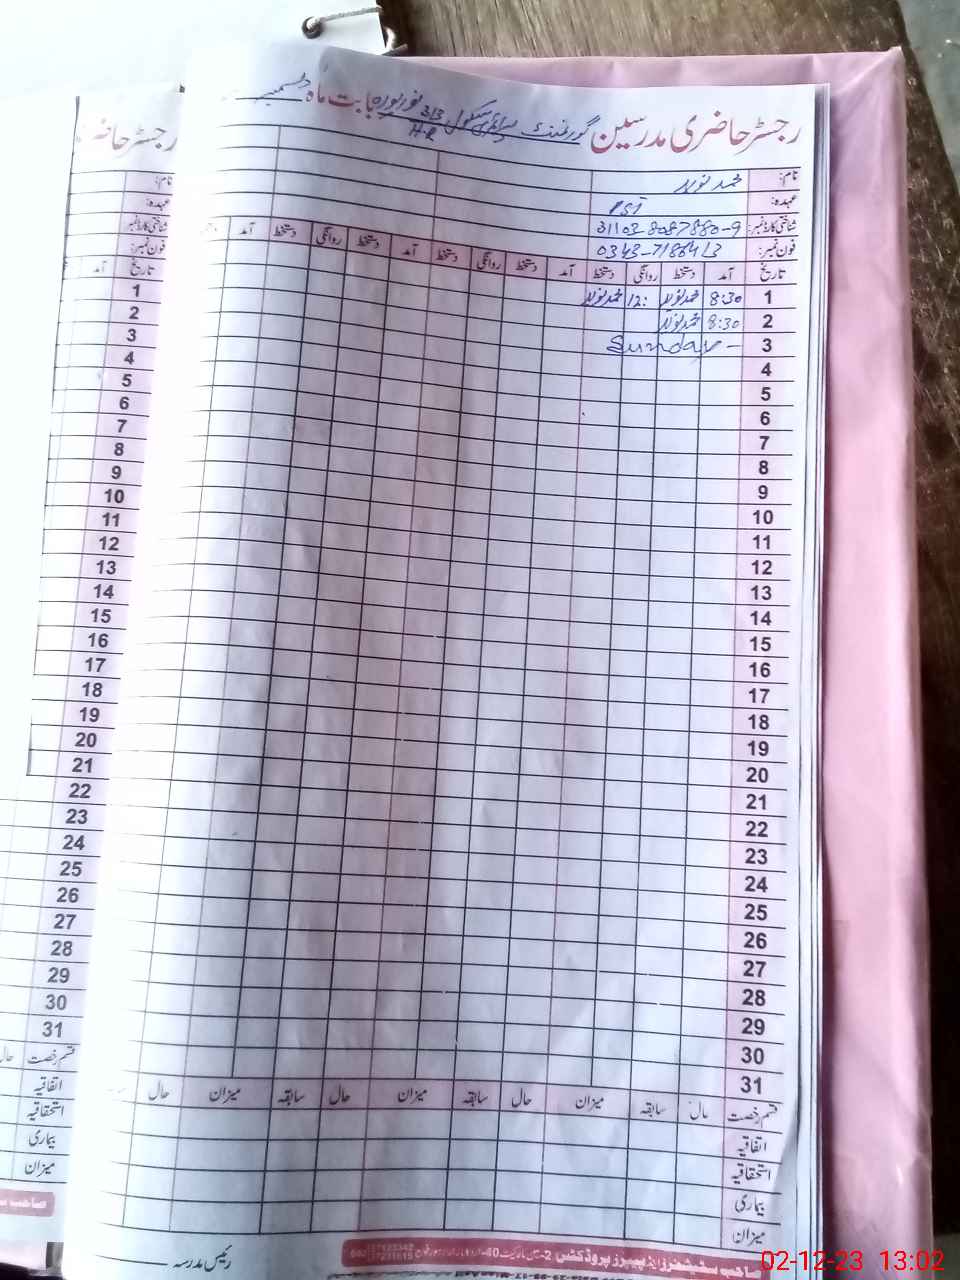 رجسٹر حاضری مدرسین گورنمنٹ پرائمری سکول 313 نورپورہ بابت ماہ دسمبر
H-R
رجسٹر حاضر
نام: محمد نوید
عہدہ: PST
شناختی کارڈ نمبر: 31103-8087880-9
فون نمبر: 0343-7186413
تاریخ آمد دستخط روانگی دستخط آمد دستخط روانگی دستخط آمد دستخط روانگی دستخط آمد
1 8:30 محمد نوید 12: محمد نوید
2 8:30 محمد نوید
3 Sunday -
4
5
6
7
8
9
10
11
12
13
14
15
16
17
18
19
20
21
22
23
24
25
26
27
28
29
30
31
قسم رخصت حال سابقہ میزان حال سابقہ میزان حال سابقہ میزان حال
اتفاقیہ
استحقاقیہ
بیماری
میزان
رئیس مدرسہ
نام:
عہدہ:
شناختی کارڈ نمبر:
فون نمبر:
تاریخ آمد
1
2
3
4
5
6
7
8
9
10
11
12
13
14
15
16
17
18
19
20
21
22
23
24
25
26
27
28
29
30
31
قسم رخصت حال
اتفاقیہ
استحقاقیہ
بیماری
میزان
02-12-23 13:02